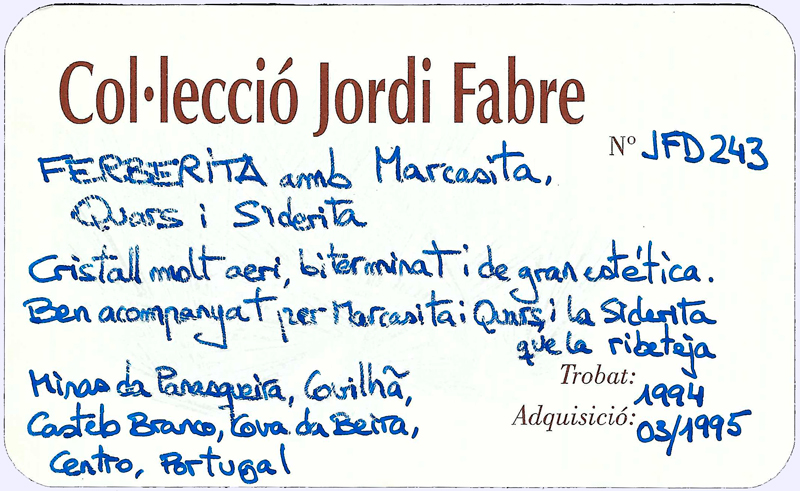 Col·lecció Jordi Fabre
Nº JFD243
FERBERITA amb Marcasita,
Quars i Siderita
Cristall molt aeri, biterminat i de gran estètica.
Ben acompanyat per Marcasita i Quars, i la Siderita
que la ribeteja
Minas da Panasqueira, Covilhã,
Castelo Branco, Cova da Beira,
Centro, Portugal
Trobat: 1994
Adquisició: 03/1995